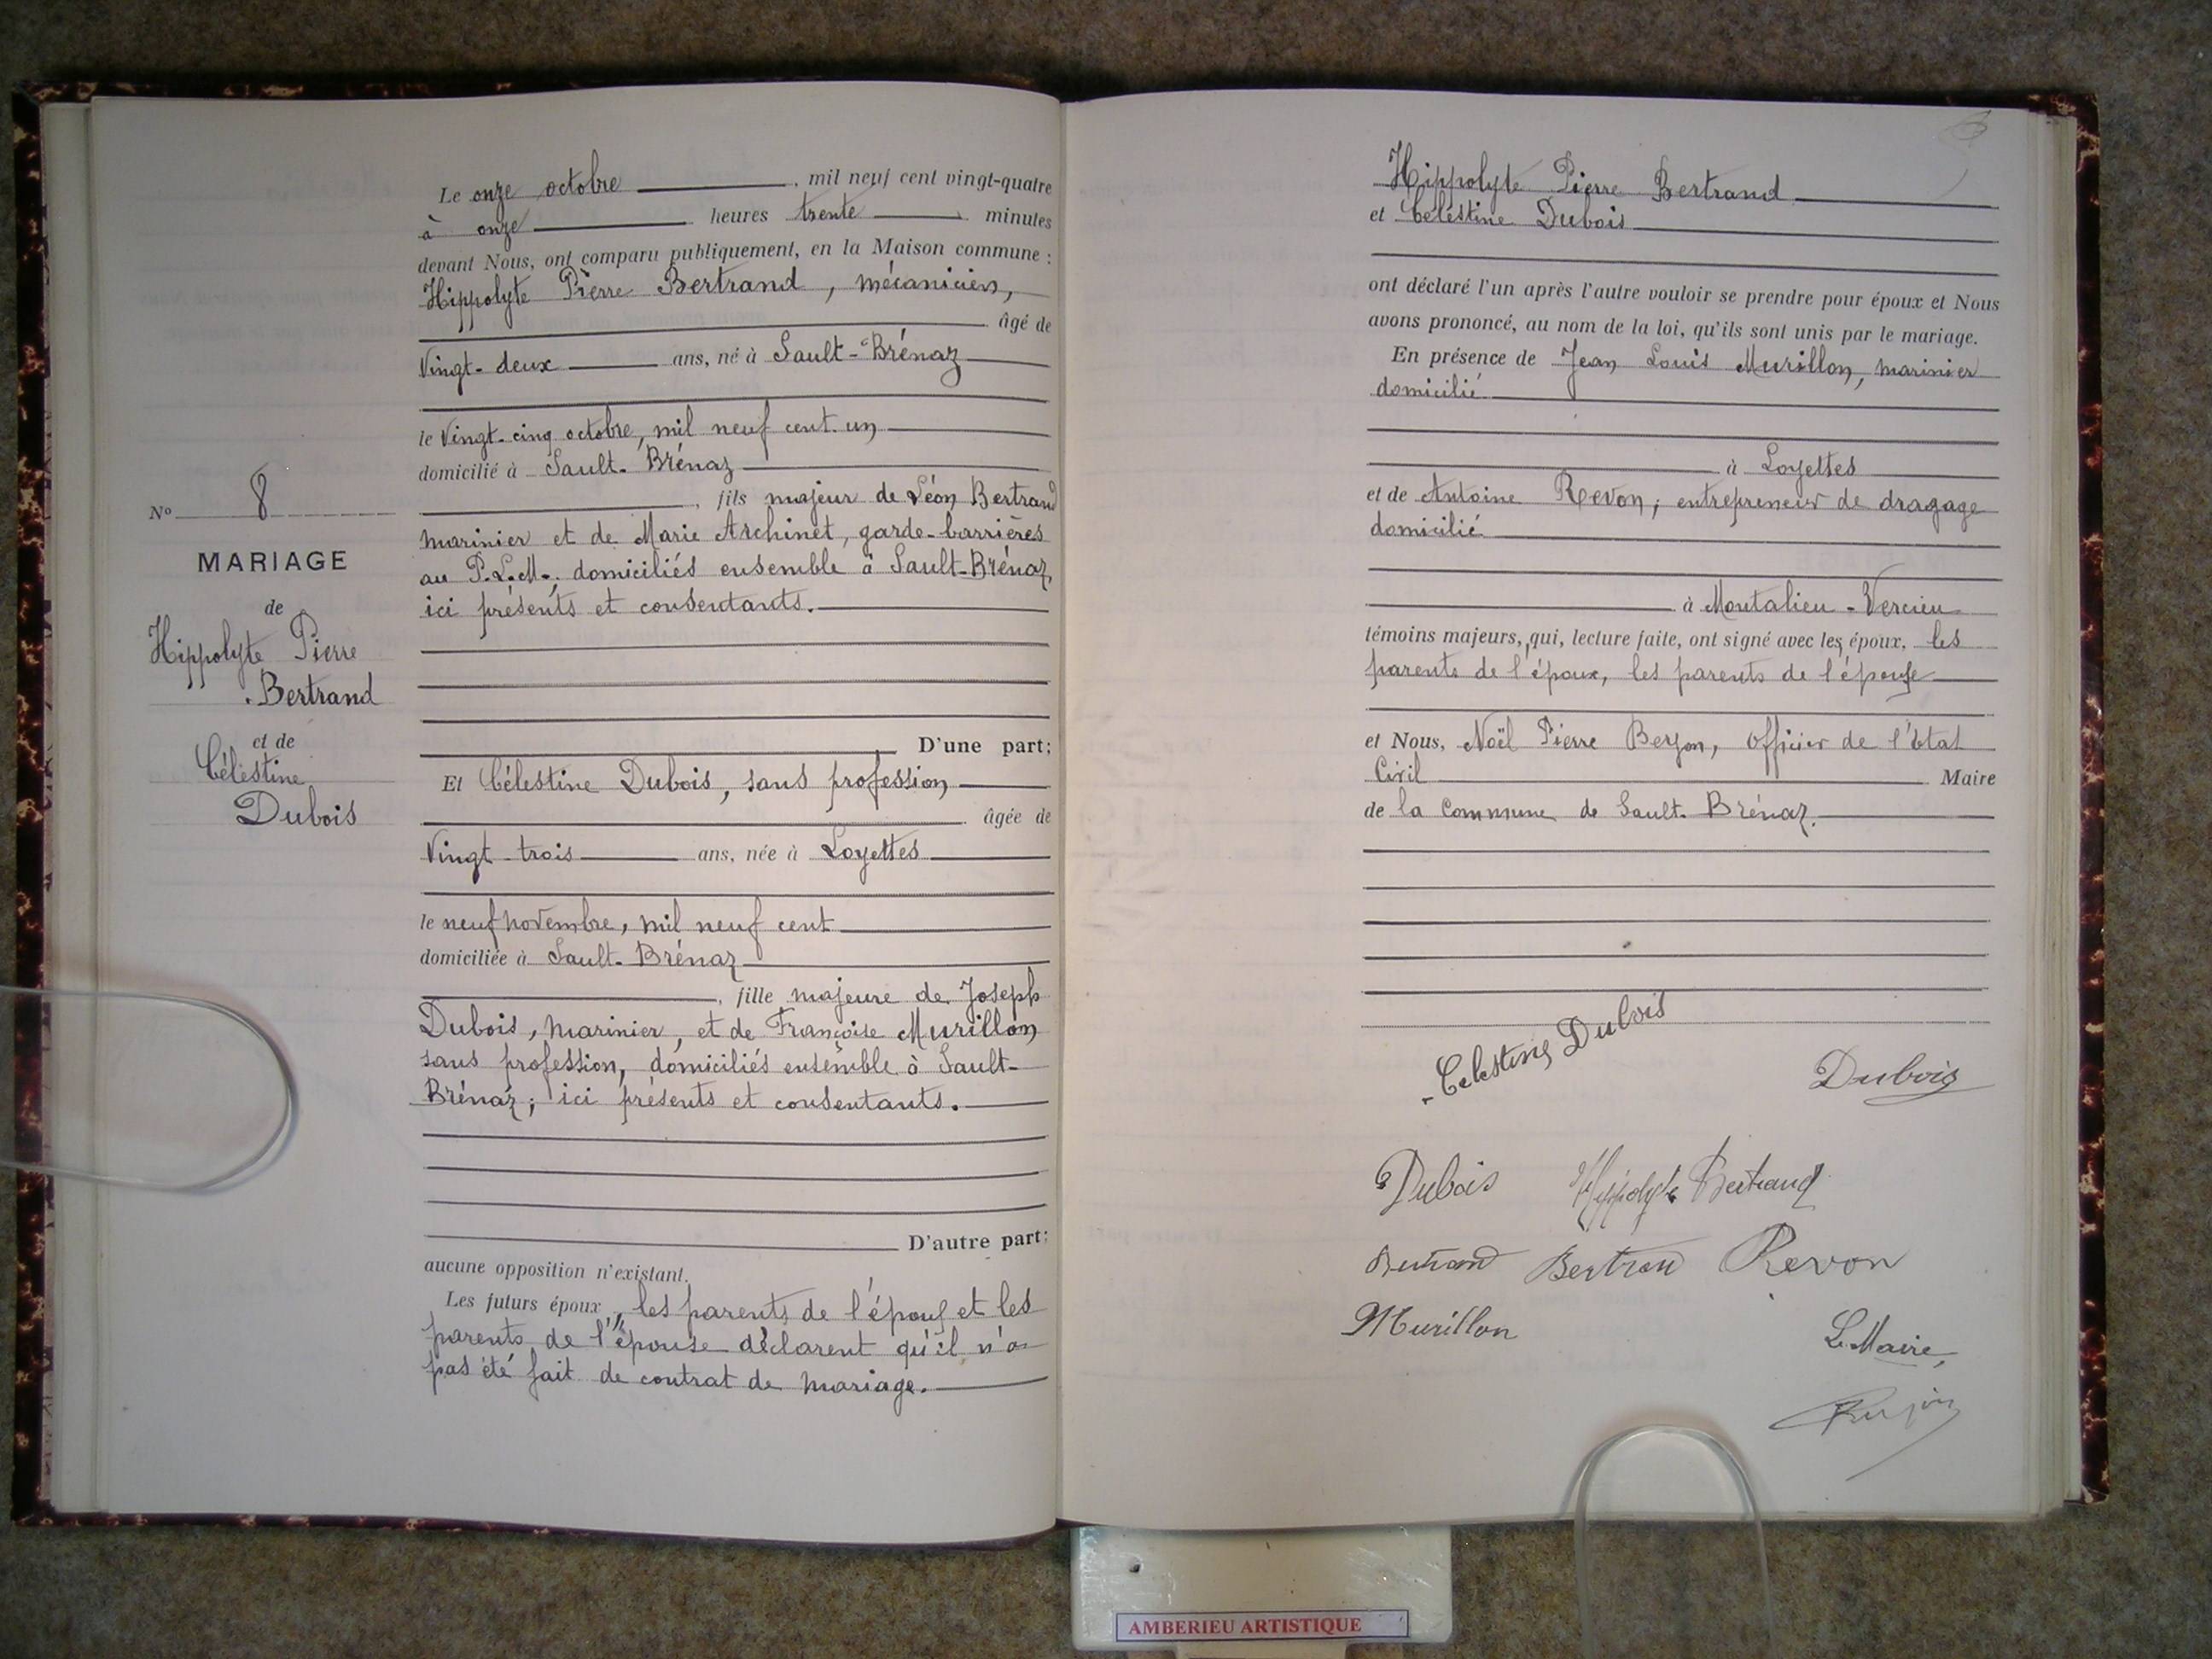 Le onze octobre, mil neuf cent vingt-quatre
à onze heures trente minutes
devant Nous, ont comparu publiquement, en la Maison commune :
Hippolyte Pierre Bertrand, mécanicien,
âgé de
Vingt-deux ans, né à Sault-Brénaz
le Vingt-cinq octobre, mil neuf cent un
domicilié à Sault-Brénaz
, fils majeur de Léon Bertrand
marinier et de Marie Archinet, garde-barrières
au P.L.M., domiciliés ensemble à Sault-Brénaz,
ici présents et consentants.
D'une part;
Et Célestine Dubois, sans profession
âgée de
Vingt-trois ans, née à Loyettes
le neuf novembre, mil neuf cent
domiciliée à Sault-Brénaz
, fille majeure de Joseph
Dubois, marinier, et de Françoise Murillon
sans profession, domiciliés ensemble à Sault-
Brénaz; ici présents et consentants.
D'autre part;
aucune opposition n'existant.
Les futurs époux, les parents de l'époux et les
parents de l'épouse déclarent qu'il n'a
pas été fait de contrat de mariage.
N° 8
MARIAGE
de
Hippolyte Pierre
Bertrand
et de
Célestine
Dubois
Hippolyte Pierre Bertrand
et Célestine Dubois
ont déclaré l'un après l'autre vouloir se prendre pour époux et Nous
avons prononcé, au nom de la loi, qu'ils sont unis par le mariage.
En présence de Jean Louis Murillon, marinier
domicilié
à Loyettes
et de Antoine Revon, entrepreneur de dragage
domicilié
à Montalieu-Vercieu
témoins majeurs, qui, lecture faite, ont signé avec les époux, les
parents de l'époux, les parents de l'épouse
et Nous, Noël Pierre officier de l'état
Civil Maire
de la Commune de Sault-Brénaz.
Celestine Dubois
Dubois
Dubois Hippolyte Bertrand
Bertrand Bertrand Revon
Murillon
Le Maire,
AMBERIEU ARTISTIQUE